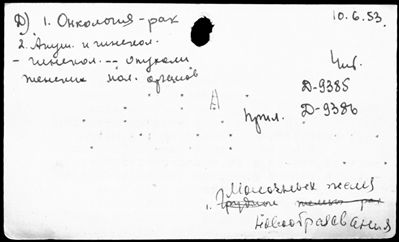 Д) 1. Онкология - рак
10.6.53.
2. Акуш. и гинекол.
- гинекол. -- опухоли
женских пол. органов
Чит.
Д-9385
прил. Д-9386
Молочных желез
1. Грудной железы рак
Новообразования